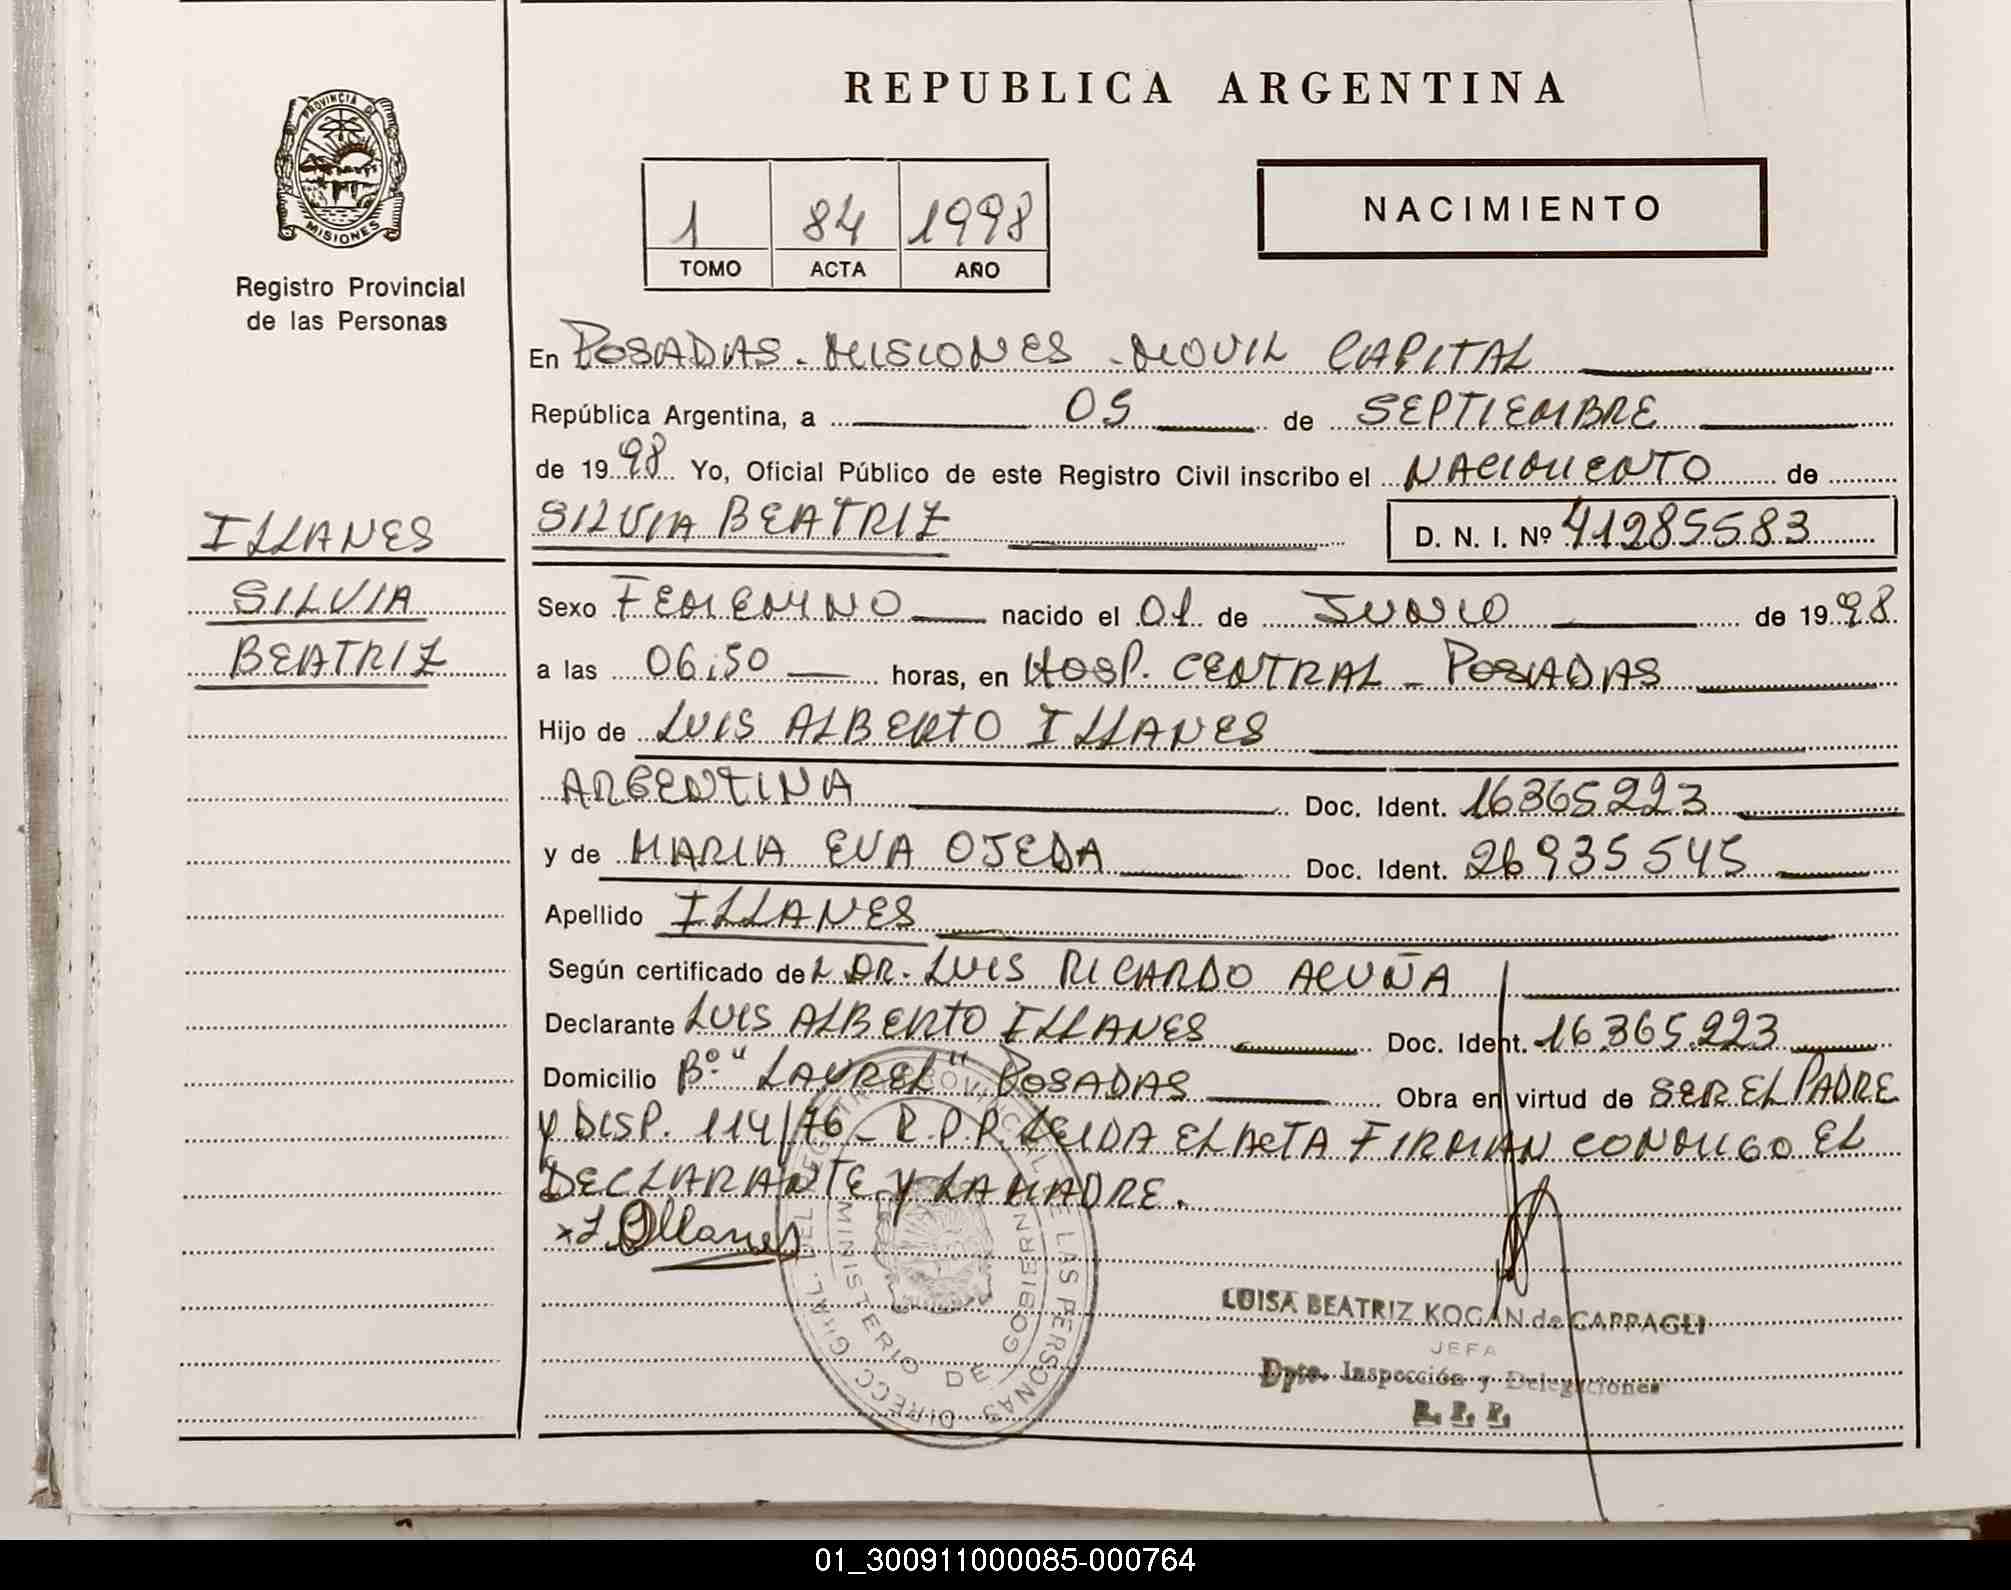 REPUBLICA ARGENTINA
PROVINCIA DE
MISIONES
Registro Provincial
de las Personas
1 84 1998
TOMO ACTA AÑO
NACIMIENTO
ILLANES
SILVIA
BEATRIZ
En POSADAS - MISIONES - MOVIL CAPITAL
República Argentina, a 05 de SEPTIEMBRE
de 1998 Yo, Oficial Público de este Registro Civil inscribo el NACIMIENTO de
SILVIA BEATRIZ D. N. I. Nº 41285583
Sexo FEMENINO nacido el 01 de JUNIO de 1998
a las 06:50 horas, en HOSP. CENTRAL - POSADAS
Hijo de LUIS ALBERTO ILLANES
ARGENTINA Doc. Ident. 16365223
y de MARIA EVA OJEDA Doc. Ident. 26935545
Apellido ILLANES
Según certificado del DR. LUIS RICARDO ACUÑA
Declarante LUIS ALBERTO ILLANES Doc. Ident. 16.365.223
Domicilio Bº "LAUREL" POSADAS Obra en virtud de SER EL PADRE
Y DISP. 114/76 - R.P.P. LEIDA EL ACTA FIRMAN CONMIGO EL
DECLARANTE Y LA MADRE.
x L. Illanes
DIRECC. GRAL. DEL REGISTRO PROVINCIAL DE LAS PERSONAS
MINISTERIO DE GOBIERNO
LUISA BEATRIZ KOGAN de CAPPAGLI
JEFA
Dpto. Inspección y Delegaciones
R. P. P.
01_300911000085-000764